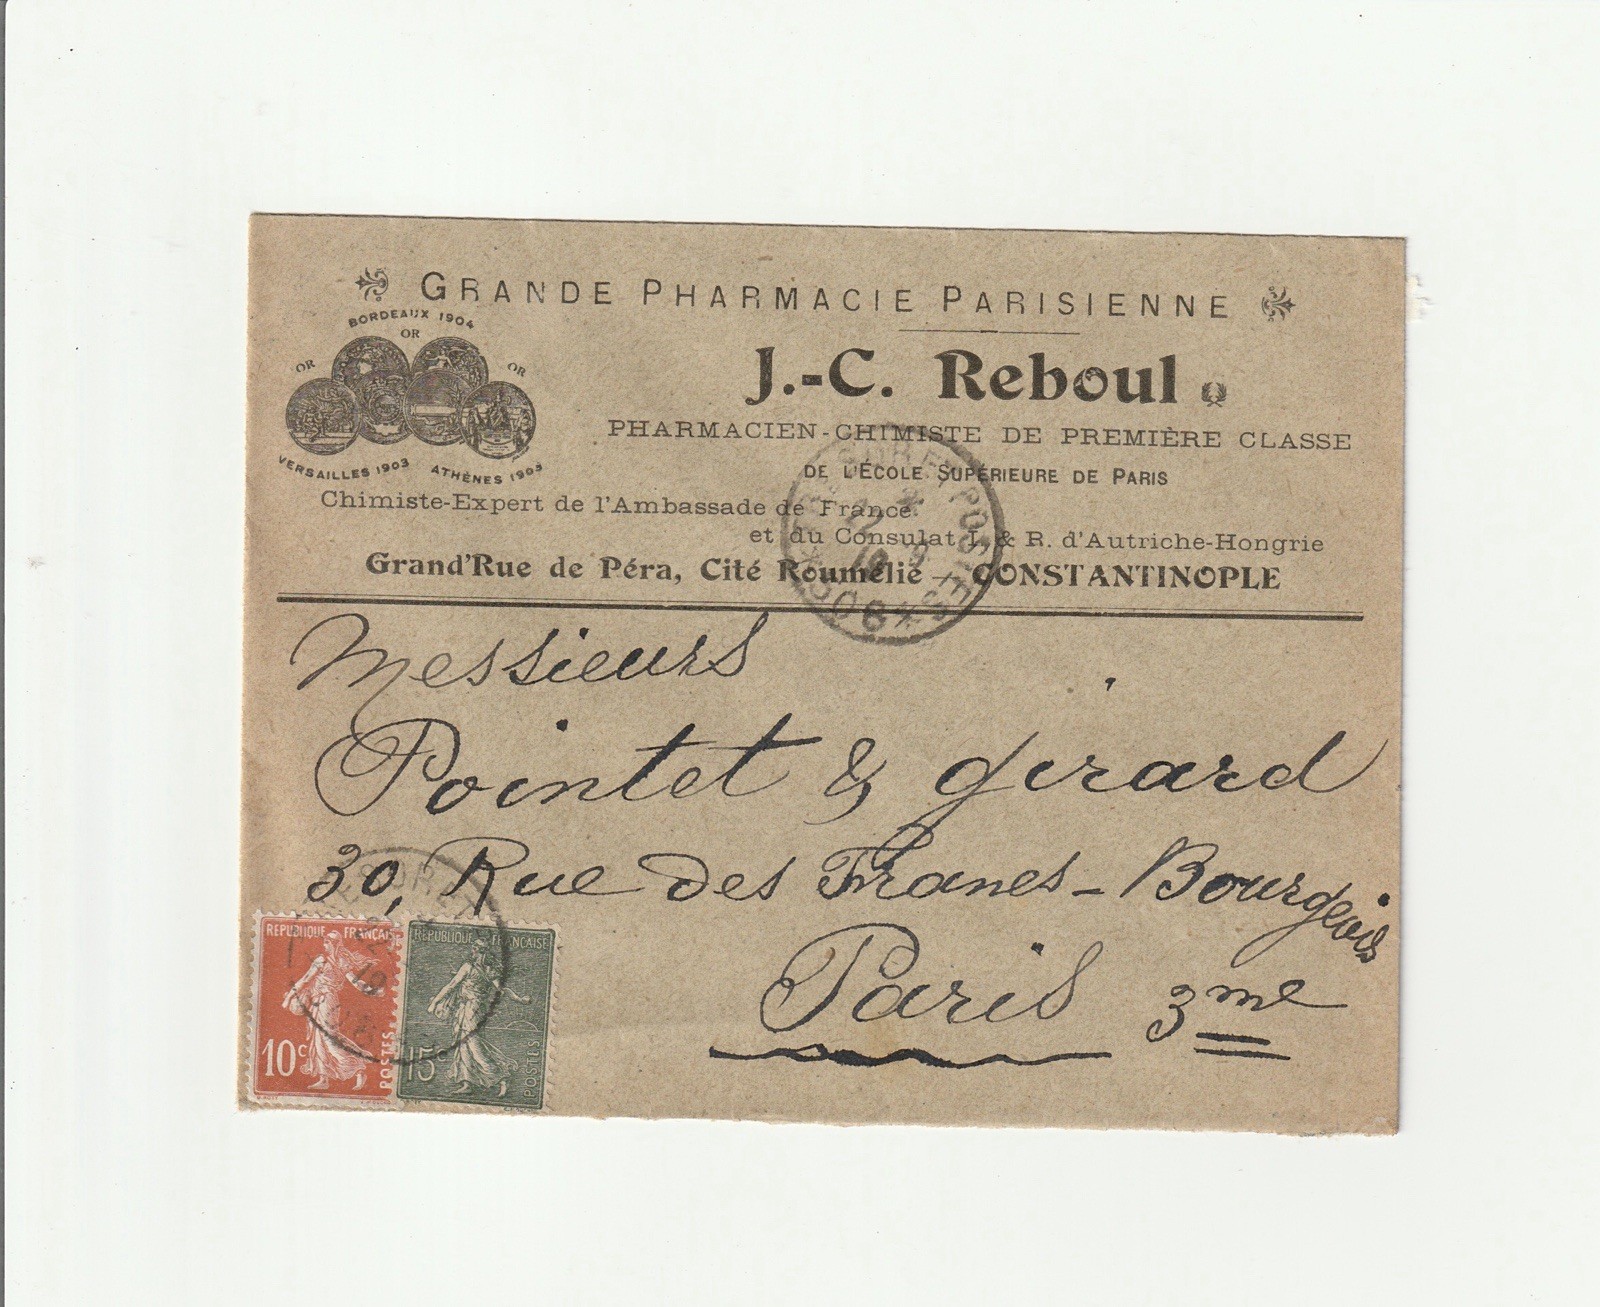 GRANDE PHARMACIE PARISIENNE
BORDEAUX 1904
OR
OR
OR
VERSAILLES 1903
ATHÈNES 1903
J.-C. Reboul
PHARMACIEN-CHIMISTE DE PREMIÈRE CLASSE
DE L'ÉCOLE SUPÉRIEURE DE PARIS
Chimiste-Expert de l'Ambassade de France
et du Consulat I. & R. d'Autriche-Hongrie
Grand'Rue de Péra, Cité Roumélie — CONSTANTINOPLE
TRESOR ET POSTES
Messieurs
Pointet & Girard
30, Rue des Francs-Bourgeois
Paris 3me
REPUBLIQUE FRANÇAISE
10c
POSTES
REPUBLIQUE FRANÇAISE
15c
POSTES